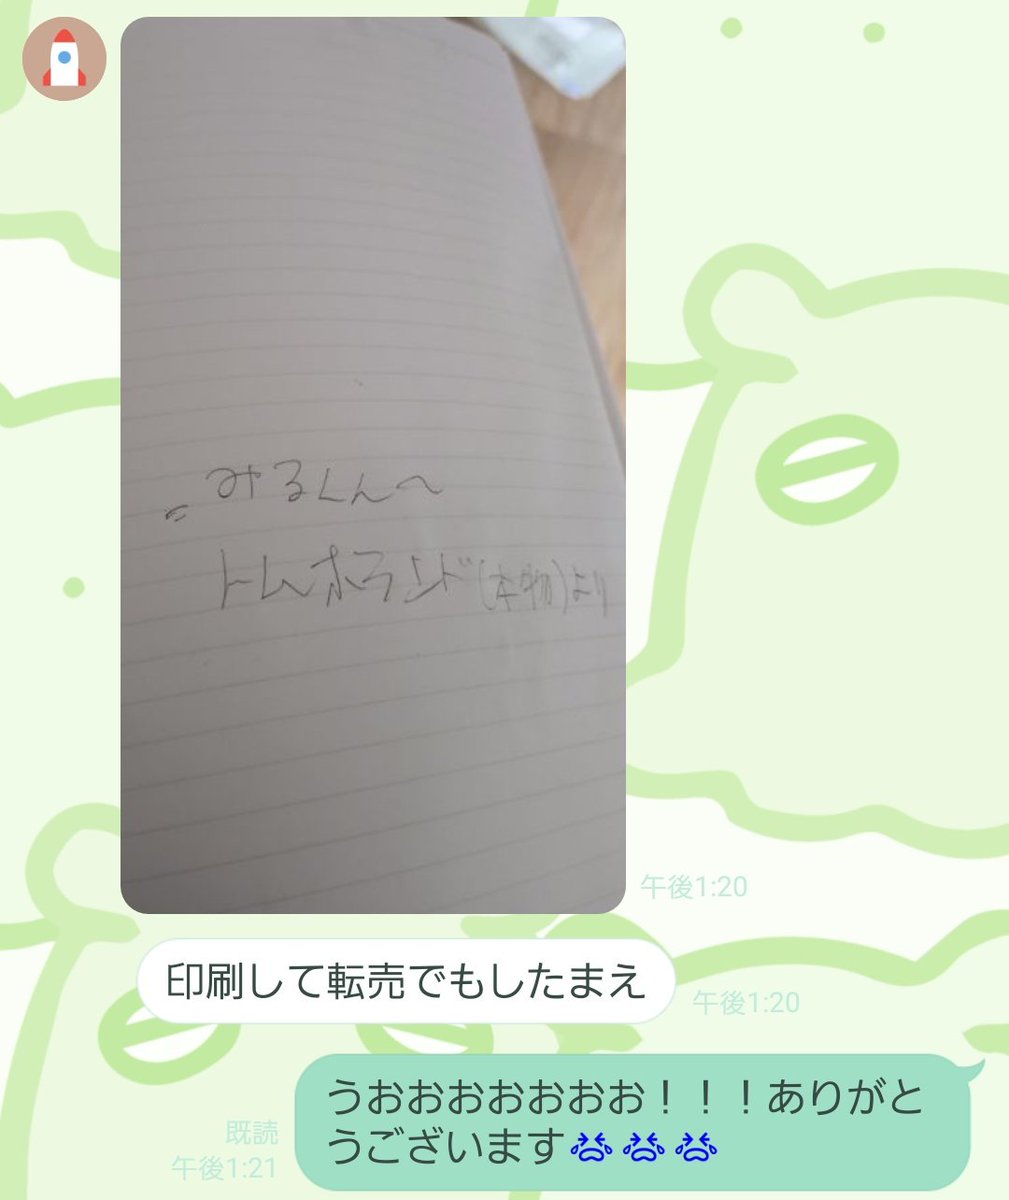 みるくんへ
トムホランド(本物)より
午後1:20
印刷して転売でもしたまえ
午後1:20
うおおおおおおお！！！ありがと
うございます😭😭😭
既読
午後1:21